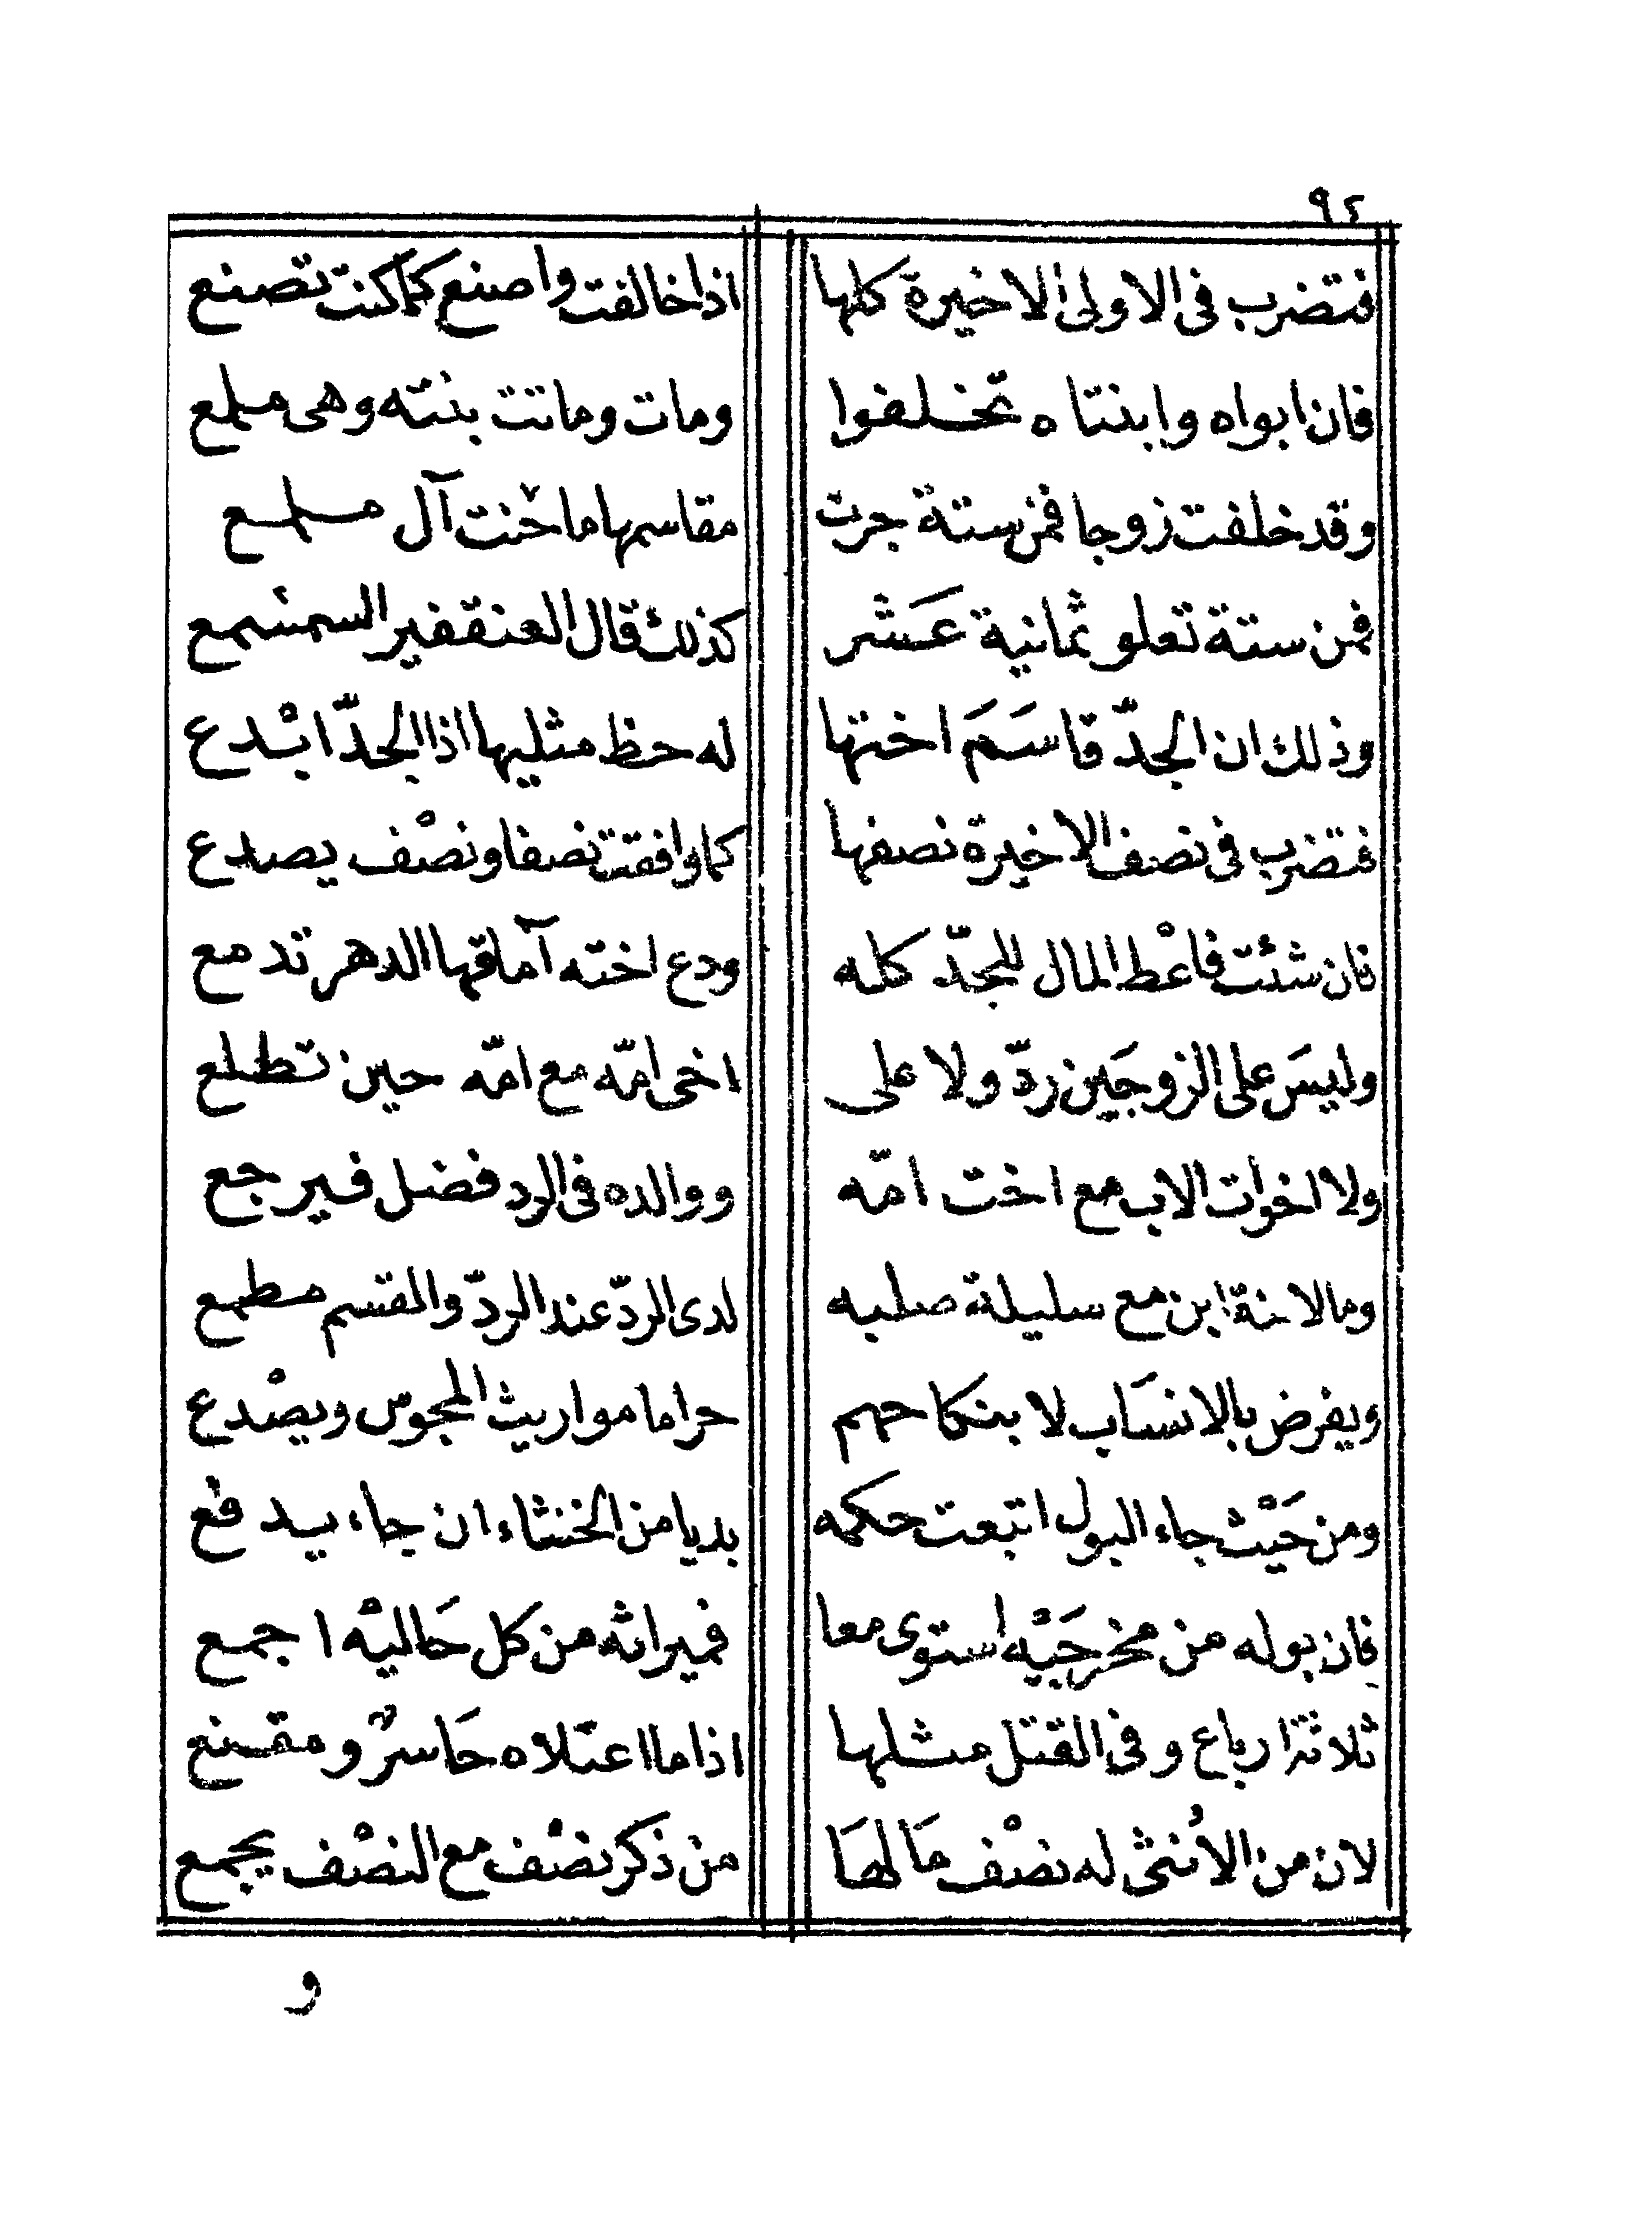 ٩٤
فتضرب فى الاولى الاخيرة كلها اذا خالفت واصنع كما كنت تصنع
فان ابواه وابنتاه تخلفوا ومات وماتت بنته وهى ملمع
وقد خلفت زوجا فمن ستة جرت مقاسمها ما خنت آل ملمع
فمن ستة تعلو ثمانية عَشر كذلك قال العنقفير السمسمع
وذلك ان الجدّ قاسَمَ اختها له حظ مثليها اذا الجدّ ابْدع
فتضرب فى نصف الاخيرة نصفها كما وافقت نصفا ونصْف يصدع
فان شئت فاعْط المال للجدّ كله ودع اخته آماقها الدهر تدمع
وليسَ على الزوجَين ردّ ولا على اخى امّه مع امّه حين تطلع
ولا اخوات الاب مع اخت امّه ووالده فى الرد فضل فيرجع
وما لابنة ابن مع سليلة صلبه لدى الردّ عند الردّ والقسم مطمع
ويفرض بالانسَاب لا بنكاحهم حراما مواريث المجوس ويصْدع
ومن حَيْث جاء البول اتبعت حكمه بديا من الخنثاء ان جاء يدفع
فان بوله من مخرجَيْه استوى معا فميراثه من كل حَاليْه اجمع
ثلاثة ارباع وفى القتل مثلها اذا ما اعتلاه حَاسرٌ ومقنع
لان من الاُنثى له نصْف مَا لهَا من ذكر نصْف مع النصْف يجمع
و